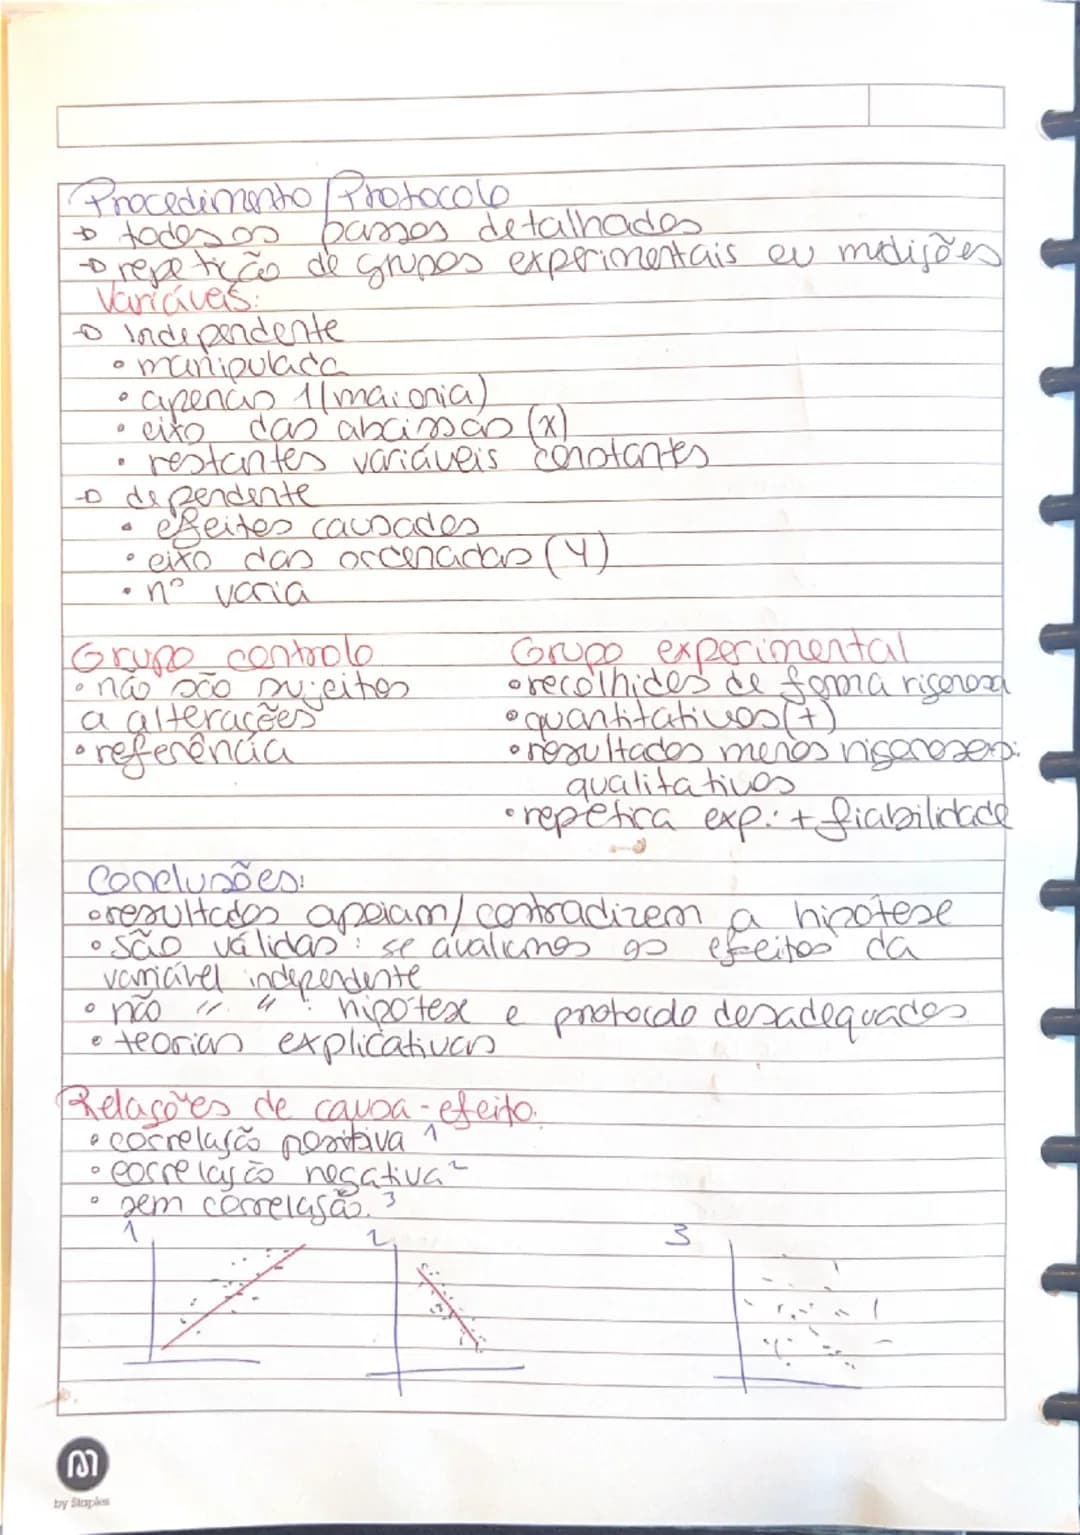 Procedimento/Protocolo
→ todos os passos detalhados
→ repetição de grupos experimentais ou medições
Variáveis:
→ independente
• manipulada
• apenas 1 (maioria)
• eixo das abcissas (x)
• restantes variáveis constantes
→ dependente
• efeitos causados
• eixo das ordenadas (Y)
• nº varia
Grupo controlo
• não são sujeitos
a alterações
• referência
Grupo experimental
• recolhidos de forma rigorosa
• quantitativos (+)
• resultados menos rigorosos:
qualitativos
• repetica exp.: + fiabilidade
Conclusões:
• resultados apoiam/contradizem a hipótese
• são válidas: se avaliamos os efeitos da
variável independente
• não " " : hipótese e protocolo desadequados
• teorias explicativas
Relações de causa-efeito.
• correlação positiva 1
• correlação negativa 2
• sem correlação. 3
1 2 3
by Staples